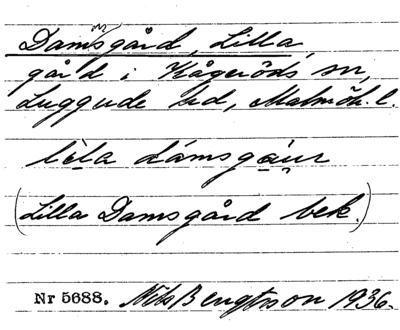 Damsgård, Lilla,
gård i Kågeröds sn,
Luggude hd, Malmöh. l.
lèla dámsgaur
(Lilla Damsgård bek.)
Nr 5688. Nils Bengtsson 1936.